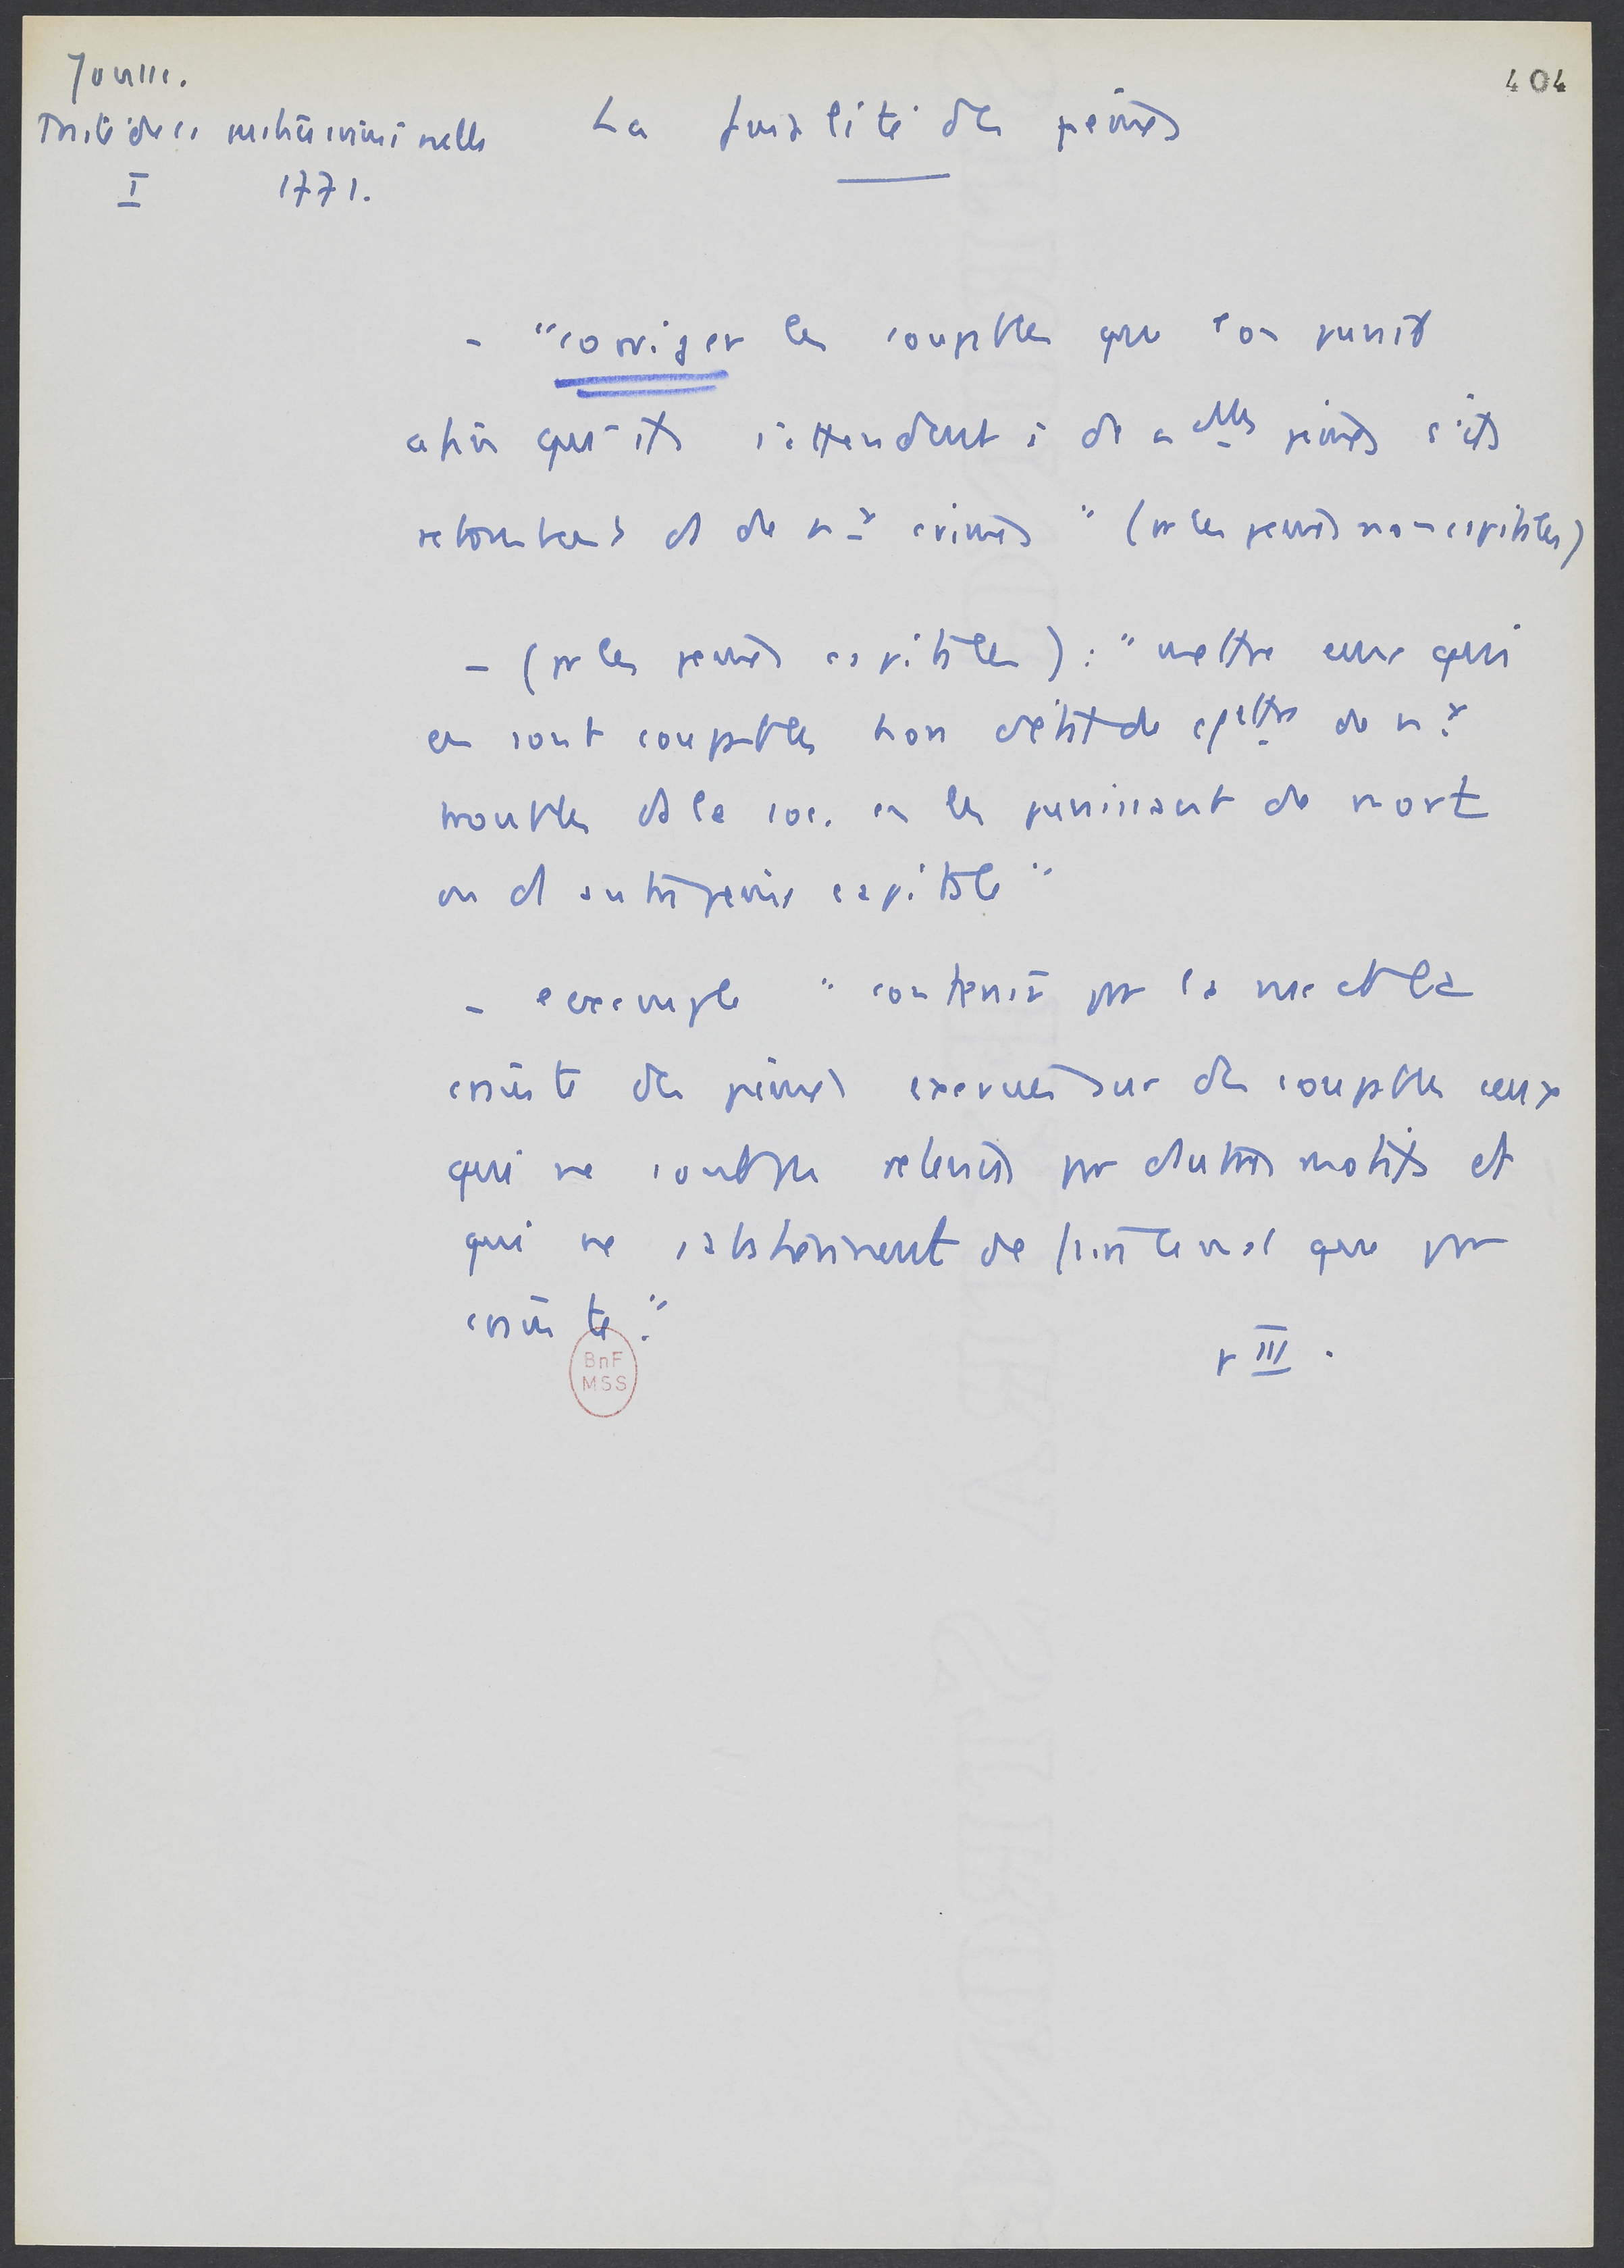 Jousse.
404
Traité de la justice criminelle
La finalité des peines
I 1771.
- "corriger les coupables que l'on punit
afin qu'ils s'attendent à de nelles peines s'ils
retombent ds de nx crimes" (pr les peines non capitales)
- (pr les peines capitales) : "mettre ceux qui
en sont coupables hors d'état de de nx
troubles ds la soc. en les punissant de mort
ou d'autre peine capitale"
- exemple "contenir par la vue et la
crainte des peines exercées sur des coupables ceux
qui ne sont pas retenus par d'autres motifs et
qui ne s'abstiennent de faire le mal que par
crainte".
p III.
BnF
MSS